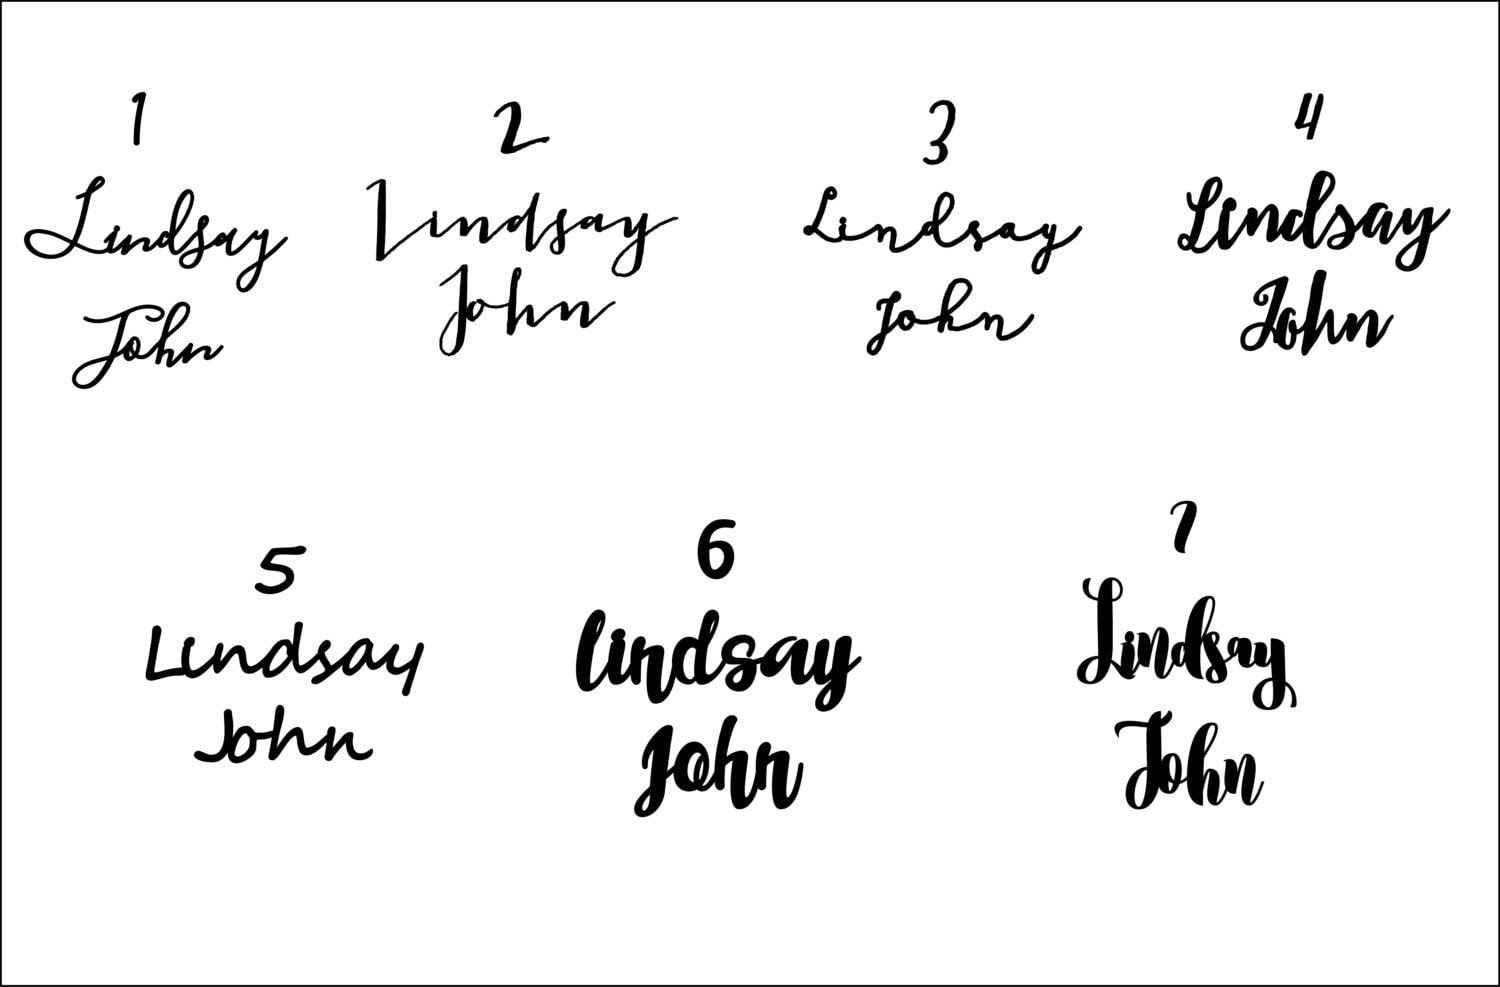 1
Lindsay
John
2
Lindsay
John
3
Lindsay
John
4
Lindsay
John
5
Lindsay
John
6
lindsay
John
7
Lindsay
John